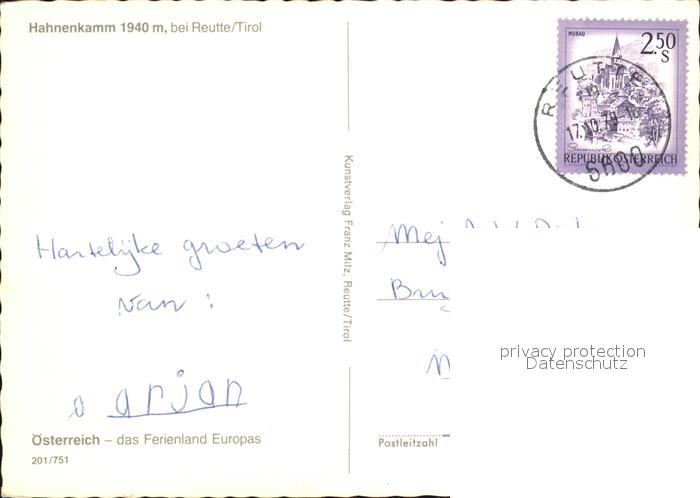 Hahnenkamm 1940 m, bei Reutte/Tirol
MURAU
2.50
S
REUTTE
17.10.79-16
REPUBLIK ÖSTERREICH
6600
Kunstverlag Franz Milz, Reutte/Tirol
Hartelijke groeten
van :
arjan
Mej
privacy protection
Datenschutz
Österreich – das Ferienland Europas
201/751
Postleitzahl